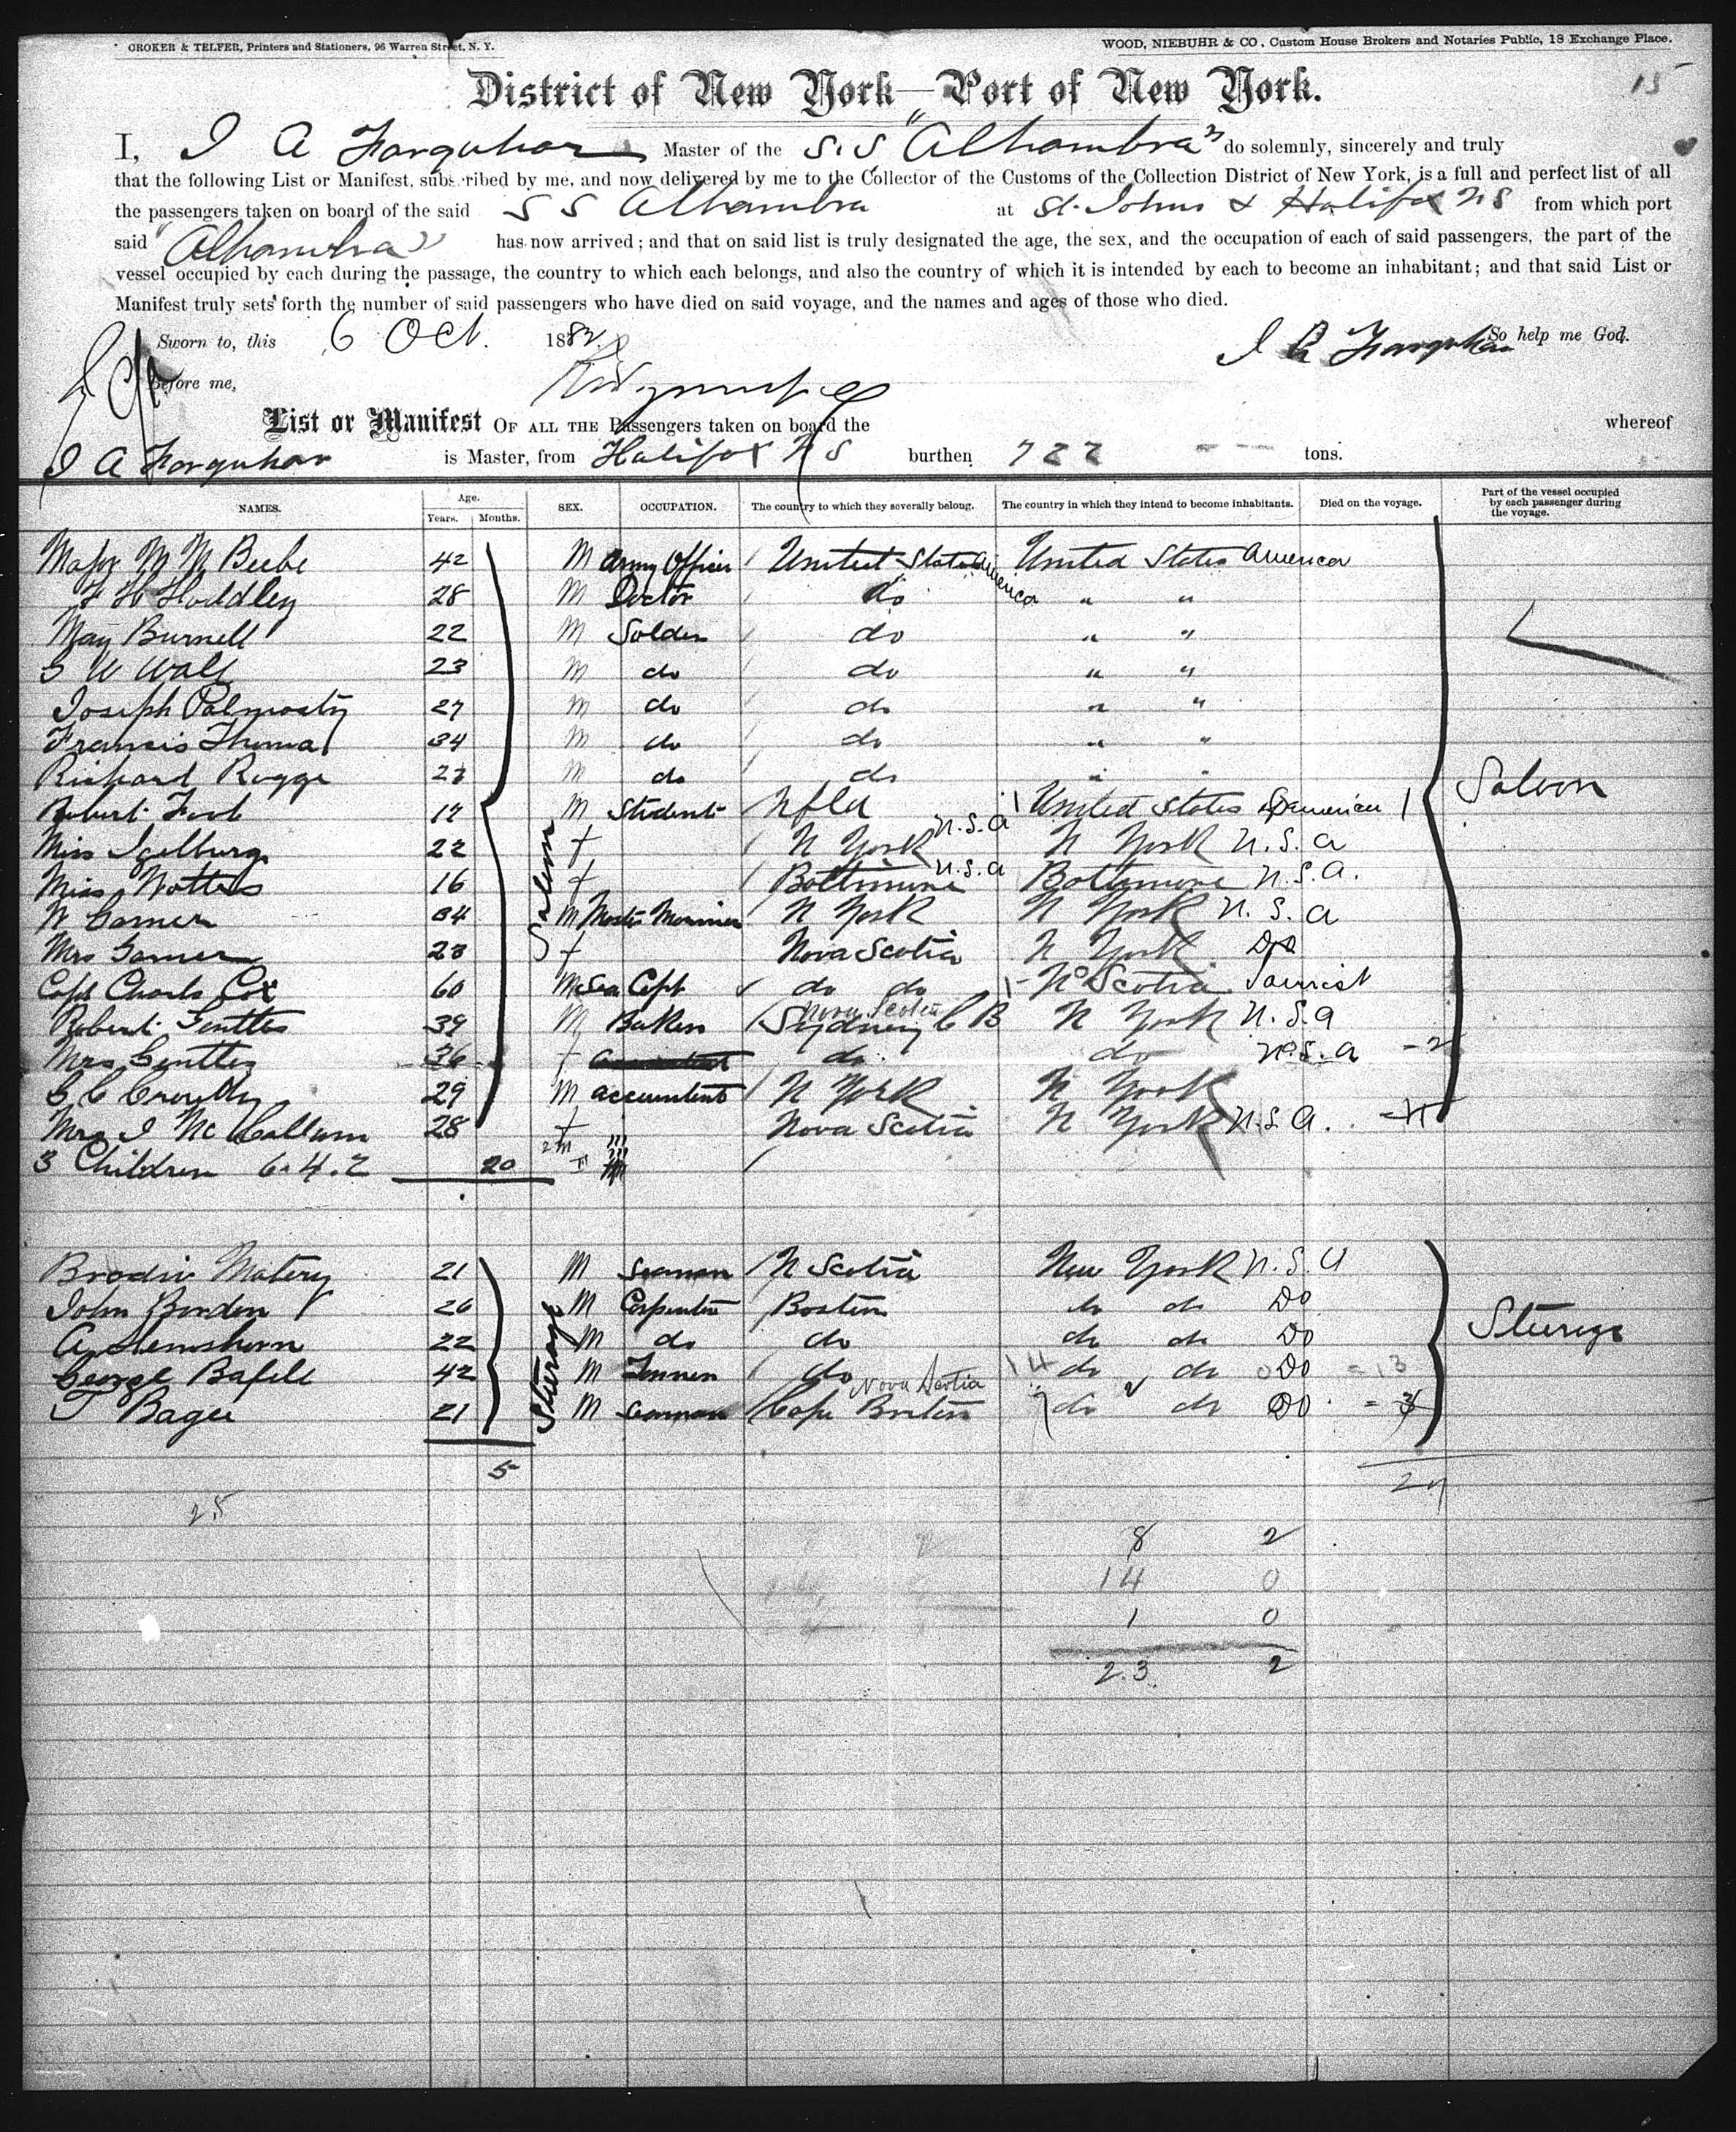 CROKER & TELFER, Printers and Stationers, 96 Warren Street, N. Y.
WOOD, NIEBUHR & CO, Custom House Brokers and Notaries Public, 18 Exchange Place.
15
District of New York—Port of New York.
I, I A Farquhar Master of the S.S "Alhambra" do solemnly, sincerely and truly
that the following List or Manifest, subscribed by me, and now delivered by me to the Collector of the Customs of the Collection District of New York, is a full and perfect list of all
the passengers taken on board of the said S S Alhambra at St. Johns & Halifax N S from which port
said "Alhambra" has now arrived; and that on said list is truly designated the age, the sex, and the occupation of each of said passengers, the part of the
vessel occupied by each during the passage, the country to which each belongs, and also the country of which it is intended by each to become an inhabitant; and that said List or
Manifest truly sets forth the number of said passengers who have died on said voyage, and the names and ages of those who died.
Sworn to, this 6 Oct. 1882 So help me God.
I A Farquhar
Before me,
List or Manifest OF ALL THE Passengers taken on board the whereof
I A Farquhar is Master, from Halifax N S burthen 722 tons.
NAMES. Age. Years. Months. SEX. OCCUPATION. The country to which they severally belong. The country in which they intend to become inhabitants. Died on the voyage. Part of the vessel occupied by each passenger during the voyage.
M M Beebe 42 M Army Officer United States America United States America
F H Hoddley 28 M Doctor do " "
May Burnell 22 M Solder do " "
S W Wall 23 M do do " "
Joseph Palmosty 27 M do do " "
Francis Thomas 34 M do do " "
Richard Rogge 23 M do do " "
Saloon
Robert Foot 17 M Student Nfld United States America
Miss Igelburg 22 f N York U.S.A N York U.S.A
Miss Notters 16 f Baltimore U.S.A Baltimore U.S.A.
Saloon
N Garner 34 M Master Mariner N York N York U.S.A
Mrs Garner 23 f Nova Scotia N York Do
Capt Charls Cox 60 M Sea Capt do do No Scotia Tourist
Robert Genttes 39 M Baker Sydney C B Nova Scotia N York U.S.A
Mrs Genttes 36 f do do U.S.A - 2
C C Crowdy 29 M accountent N York N York
Mrs J McCallum 28 f Nova Scotia N York U.S.A.
3 Children 6.4.2 20 2 M
Brodie Matery 21 M Seaman N Scotia New York U.S.A
John Bordon 26 M Carpenter Boston do do Do
Steerage
Steerage
A Hemshorn 22 M do do do do Do
George Bafell 42 M do 14 do do Do = 13
T Bager 21 M Seaman Cape Breton Nova Scotia do do Do =
5
25
8 2
14 0
1 0
23 2